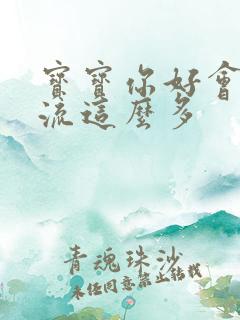 寶寶你好會
流這麼多
青魂珠沙
未經同意禁止轉載